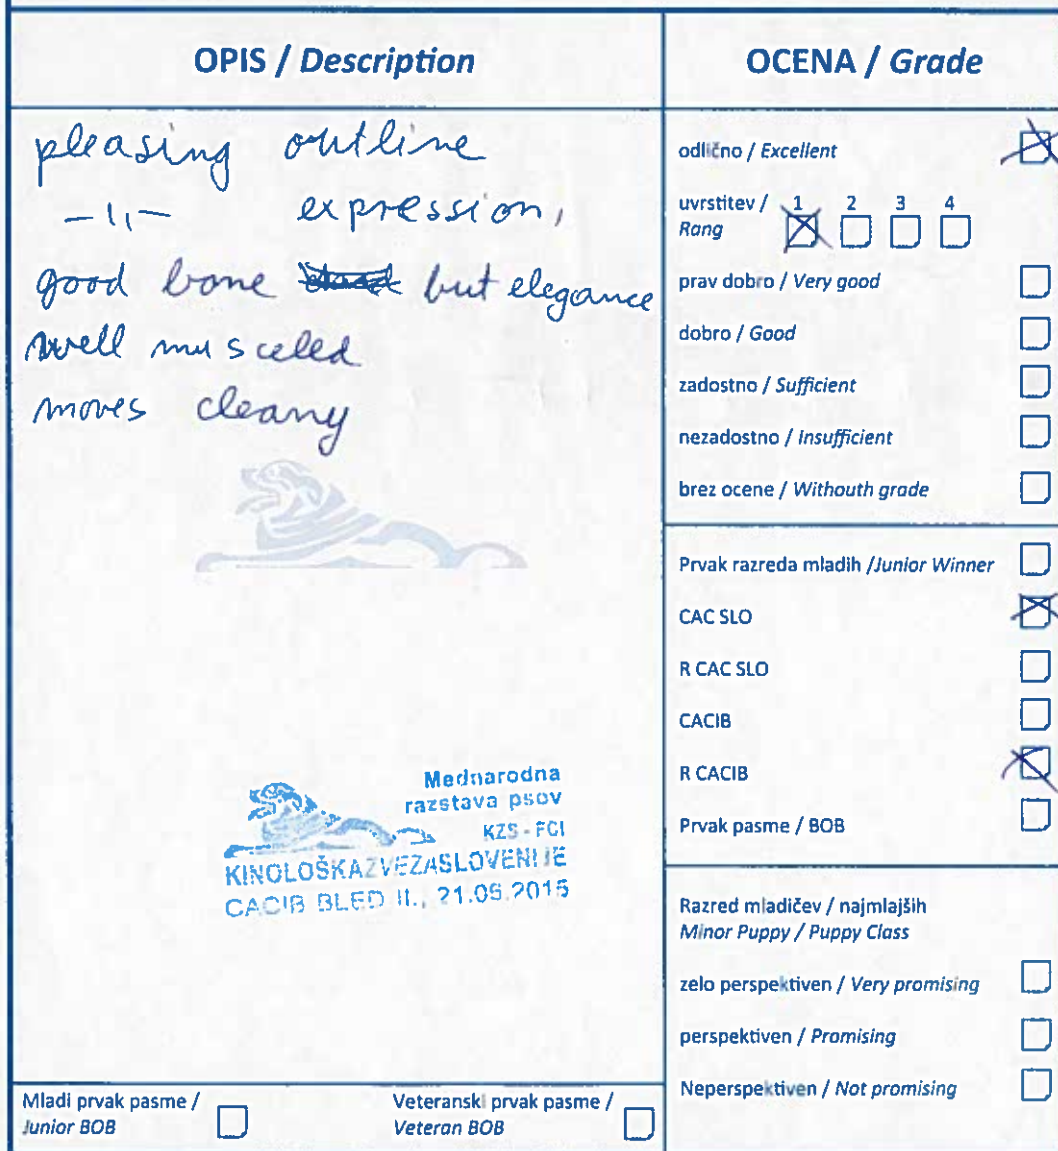 OPIS / Description
pleasing outline
-11- expression,
good bone but elegance
well musceled
moves cleany
Mednarodna
razstava psov
KZS - FCI
KINOLOŠKA ZVEZA SLOVENIJE
CACIB BLED II., 21.06.2015
Mladi prvak pasme /
Junior BOB
Veteranski prvak pasme /
Veteran BOB
OCENA / Grade
odlično / Excellent
uvrstitev / 1 2 3 4
Rang
prav dobro / Very good
dobro / Good
zadostno / Sufficient
nezadostno / Insufficient
brez ocene / Withouth grade
Prvak razreda mladih /Junior Winner
CAC SLO
R CAC SLO
CACIB
R CACIB
Prvak pasme / BOB
Razred mladičev / najmlajših
Minor Puppy / Puppy Class
zelo perspektiven / Very promising
perspektiven / Promising
Neperspektiven / Not promising